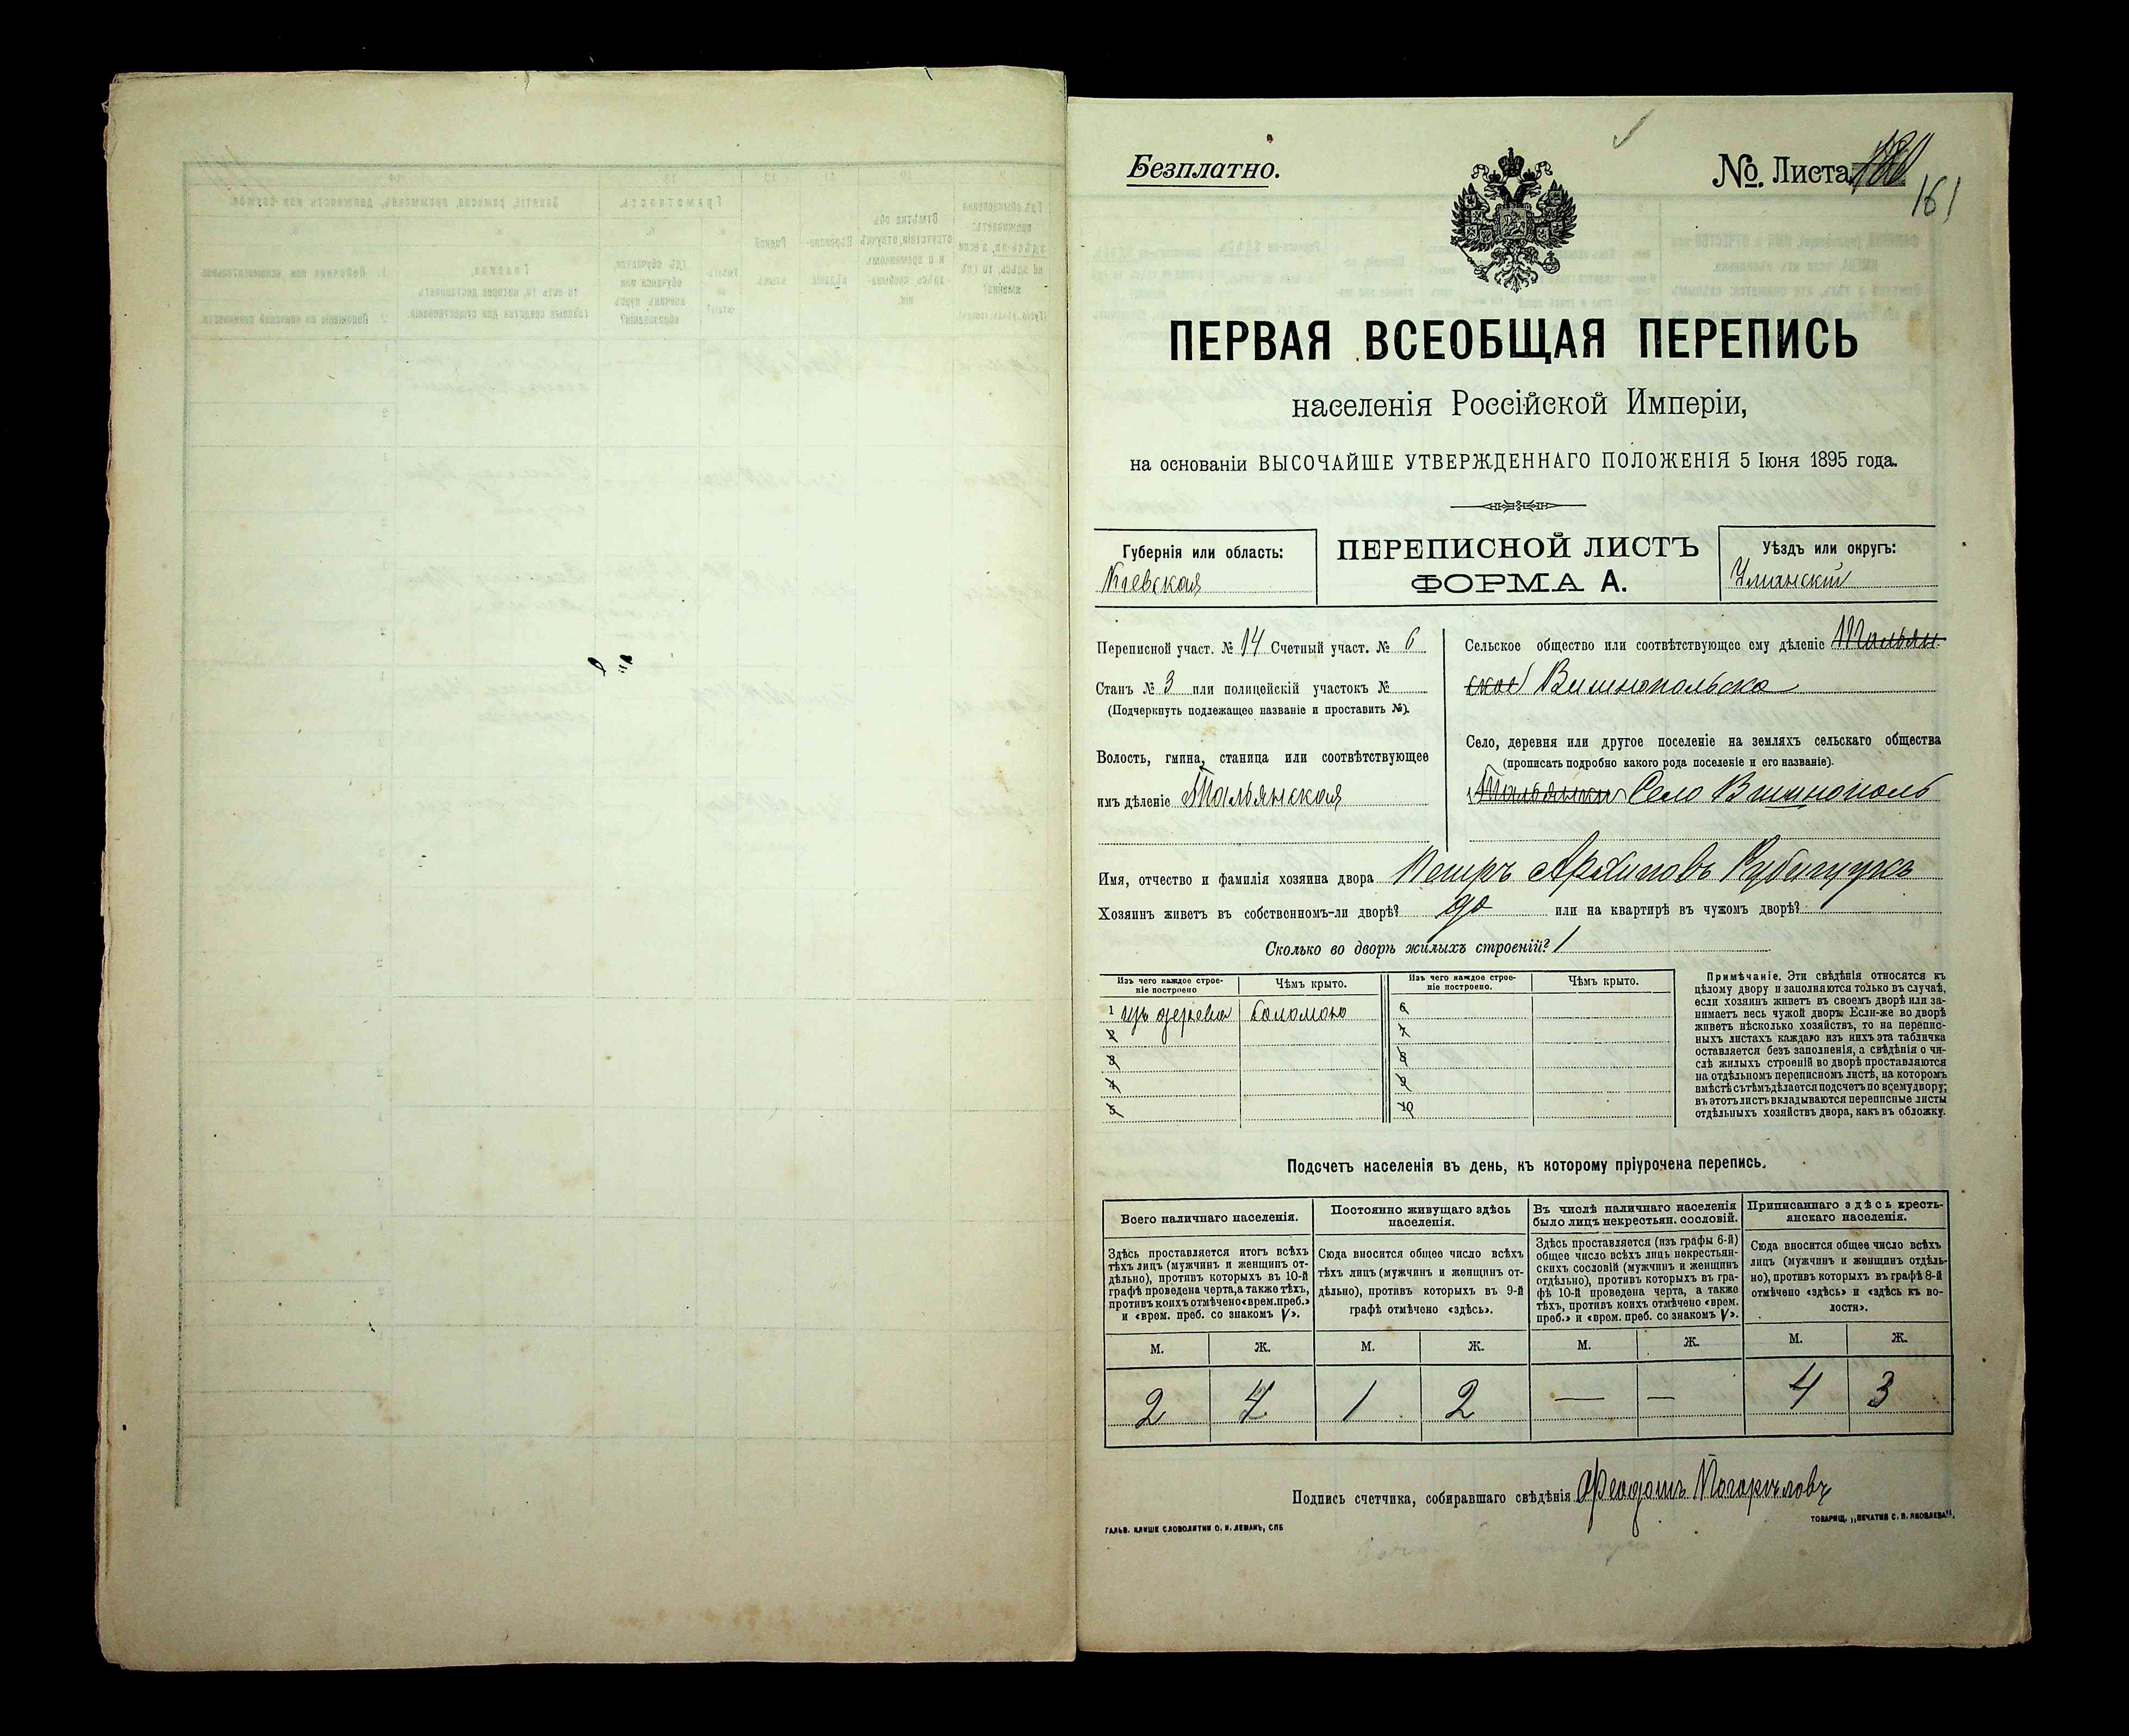 Безплатно.
№. Листа
161
ПЕРВАЯ ВСЕОБЩАЯ ПЕРЕПИСЬ
населенія Россійской Имперіи,
на основаніи ВЫСОЧАЙШЕ УТВЕРЖДЕННАГО ПОЛОЖЕНІЯ 5 Іюня 1895 года.
Губернія или область:
Кіевская
ПЕРЕПИСНОЙ ЛИСТЪ
ФОРМА А.
Уѣздъ или округъ:
Уманскій
Переписной участ. № 14 Счетный участ. № 6
Станъ № 3 или полицейскій участокъ №
(Подчеркнуть подлежащее названіе и проставить №).
Волость, гмина, станица или соотвѣтствующее
имъ дѣленіе Тальянская
Сельское общество или соотвѣтствующее ему дѣленіе Тальян-
ское Вишнопольско
Село, деревня или другое поселеніе на земляхъ сельскаго общества
(прописать подробно какого рода поселеніе и его названіе).
Тальянки Село Вишнополь
Имя, отчество и фамилія хозяина двора Петръ Архиповъ
Хозяинъ живетъ въ собственномъ-ли дворѣ? да или на квартирѣ въ чужомъ дворѣ?
Сколько во дворѣ жилыхъ строеній? 1
Изъ чего каждое строе-
ніе построено
Чѣмъ крыто.
Изъ чего каждое строе-
ніе построено.
Чѣмъ крыто.
1 изъ дерева соломою
2
3
4
5
6
7
8
9
10
Примѣчаніе. Эти свѣдѣнія относятся къ
цѣлому двору и заполняются только въ случаѣ,
если хозяинъ живетъ въ своемъ дворѣ или за-
нимаетъ весь чужой дворъ. Если-же во дворѣ
живетъ нѣсколько хозяйствъ, то на перепис-
ныхъ листахъ каждаго изъ нихъ эта табличка
оставляется безъ заполненія, а свѣдѣнія о чи-
слѣ жилыхъ строеній во дворѣ проставляются
на отдѣльномъ переписномъ листѣ, на которомъ
вмѣстѣ съ тѣмъ дѣлается подсчетъ по всему двору;
въ этотъ листъ вкладываются переписные листы
отдѣльныхъ хозяйствъ двора, какъ въ обложку.
Подсчетъ населенія въ день, къ которому пріурочена перепись.
Всего наличнаго населенія.
Здѣсь проставляется итогъ всѣхъ
тѣхъ лицъ (мужчинъ и женщинъ от-
дѣльно), противъ которыхъ въ 10-й
графѣ проведена черта, а также тѣхъ,
противъ коихъ отмѣчено «врем. преб.»
и «врем. преб. со знакомъ V».
Постоянно живущаго здѣсь
населенія.
Сюда вносится общее число всѣхъ
тѣхъ лицъ (мужчинъ и женщинъ от-
дѣльно), противъ которыхъ въ 9-й
графѣ отмѣчено «здѣсь».
Въ числѣ наличнаго населенія
было лицъ некрестьян. сословій.
Здѣсь проставляется (изъ графы 6-й)
общее число всѣхъ лицъ некрестьян-
скихъ сословій (мужчинъ и женщинъ
отдѣльно), противъ которыхъ въ гра-
фѣ 10-й проведена черта, а также
тѣхъ, противъ коихъ отмѣчено «врем.
преб.» и «врем. преб. со знакомъ V».
Приписаннаго здѣсь кресть-
янскаго населенія.
Сюда вносится общее число всѣхъ
лицъ (мужчинъ и женщинъ отдѣль-
но), противъ которыхъ въ графѣ 8-й
отмѣчено «здѣсь» и «здѣсь къ во-
лости».
М. Ж. М. Ж. М. Ж. М. Ж.
2 4 1 2 — — 4 3
Подпись счетчика, собиравшаго свѣдѣнія Феодотъ Погорѣловъ
ГАЛЬВ. КЛИШЕ СЛОВОЛИТНИ О. И. ЛЕМАНЪ, СПБ
ТОВАРИЩ. „ПЕЧАТНЯ С. П. ЯКОВЛЕВА".